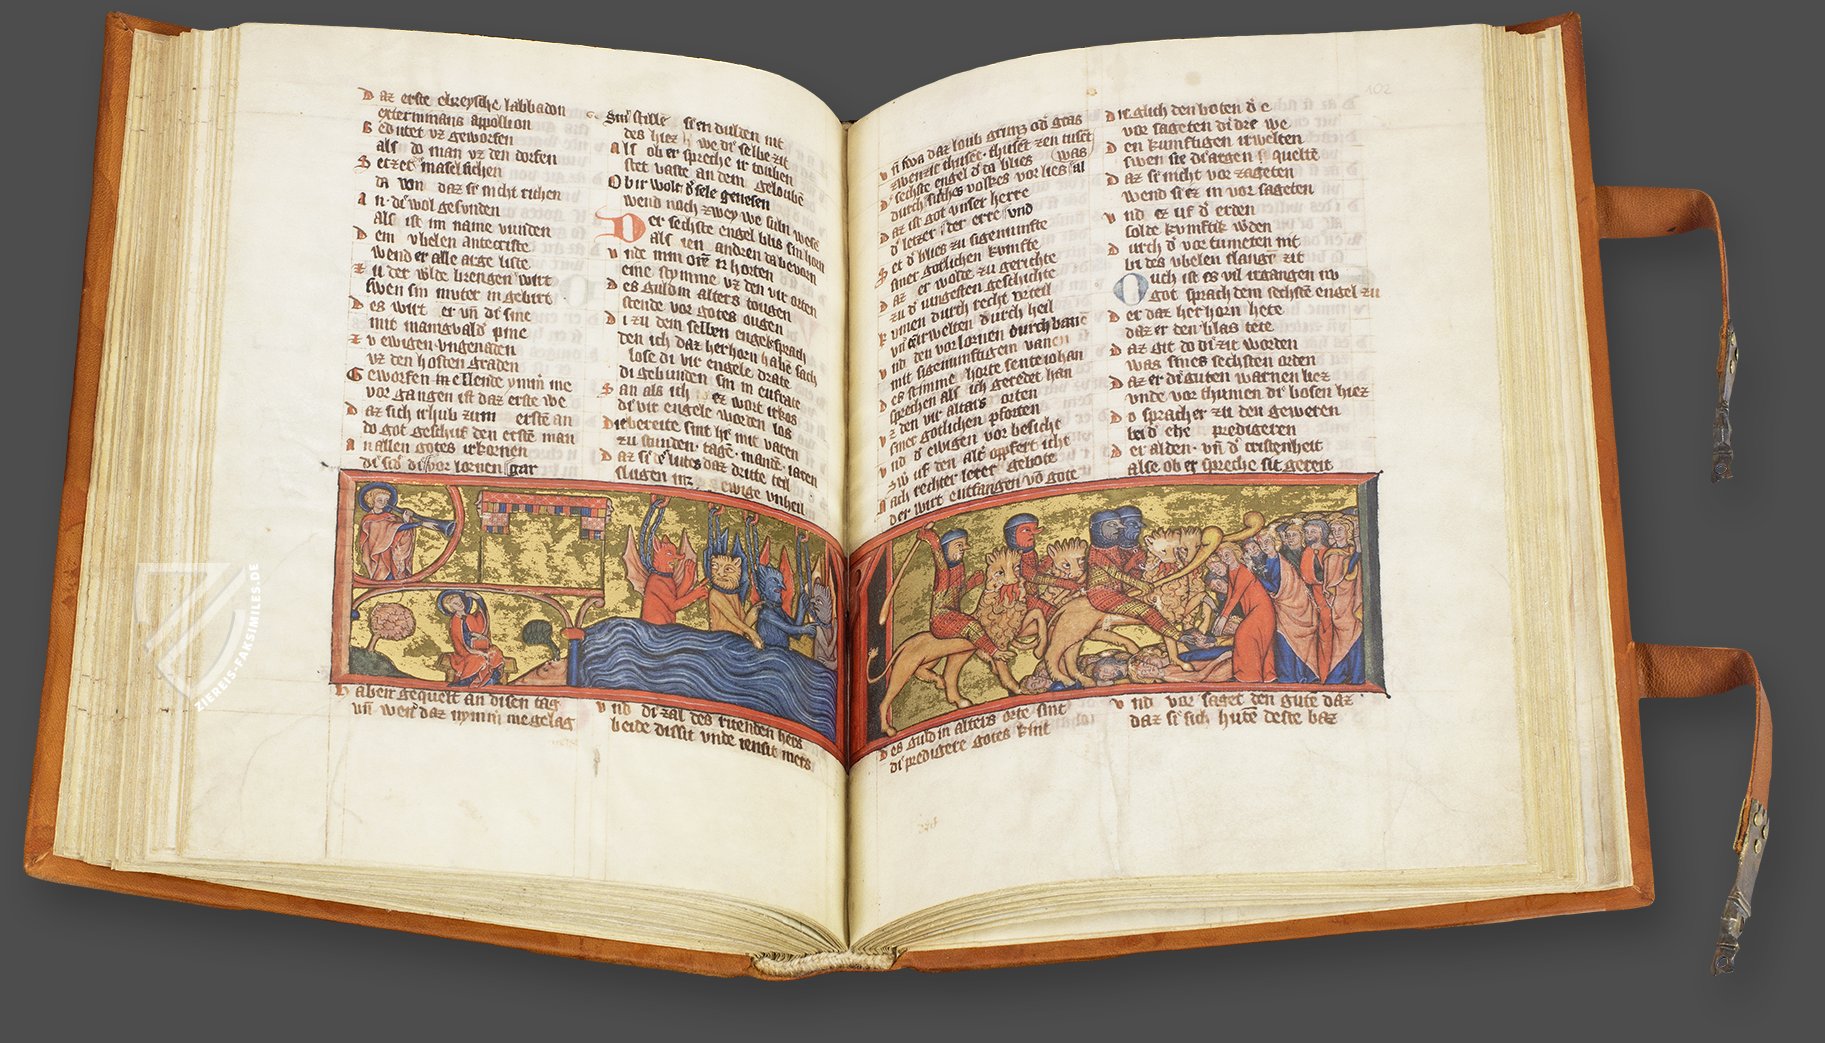 Daz erste ebreysche labbadon
exterminans appollion
Gedutet vz geworfen
als do man vz den dorfen
Setzet maselsuchen
da von daz si nicht ruhen
an
als ist im name vunden
Dem vbelen antecriste
wend er alle arge liste
zu der werlde brengen wirt
swen sin muter in gebirt
Des wirt er vn̄ di sine
mit manigualder pine
zv ewigen vngenaden
vz den hosten graden
Geworfen in ellende ymm̄ me
vor gangen ist daz erste we
Daz sich irhub zum erstē an
do got geschuf den erstē man
an allen gotes irkornen
vor lornen gar
haben gequelt an disen tag
vn̄ wen daz nymm̄ me gelag
Sin stille si en dulden nit
des hiez we di selbe zit
als ob er spreche ir touben
stet vaste an dem geloubē
Ob ir wolt d sele genesen
wend noch zwey we suln wesē
Der sechste engel blis sin horn
als ien andren da bevorn
vnde min orē ir horten
eine stymme vz den vir orten
Des guldin alters tougen
stende vor gotes ougen
Di zu dem selben engel sprach
den ich daz herhorn haben sach
lose di vir engele drate
di gebunden sin in eufrate
San als ich ez wort irkos
di vir engele worden los
Die bereite sint
zu stunden. tage. mande. iaren
Daz si d lutes daz dritte teil
slugen inz ewige vnheil
vnd di zal des ritenden hers
beide dissit vnde iensit mers
vn̄ swa daz loub grunz od gras
was
sechste engel d da blies
durch
daz ist got vnser herre
d letzer d er erre vnd
Set d blies zu sigenunfte
siner gotlichen kvmfte
daz er wolde zu gerichte
zu d iungesten geschichte
kumen durch recht vrteil
vn̄ irwelten durch heil
vnd den vorlornen durch banē
mit sigenunftigem vanen
Des stimme horte sente iohan
sprechen als ich geredet han
vz den vir altars orten
siner gotlichen pforten
vnd d ewigen vor besicht
vf den alt opfert icht
nach rechter seter gebote
der wirt entfangen vō gote
Des guld in alters orte sint
di predigere gotes kint
Die glich den boten
vor sageten di dre we
Den kumftigen irwelten
swen sie di argen quelte
Daz si nicht vor zageten
wend si ez in vor sageten
vnd ez vf d erden
solde kvmftik wden
Durch d voe tumeten nit
bi des vbelen slange zit
Ouch ist es vil irgangen nv
got sprach dem sechstē engel zu
Der daz her horn hete
daz er den blas tete
Daz git do di zit worden
was sines sechsten orden
Daz er di guten warnen liez
vnde vor thumen di bosen hiez
Do sprach er zu den geweren
bi d ehe predigeren
Der alden. vn̄ d cristenheit
alse ob er spreche sit gereit
vnd vor saget den gute daz
daz si sich hutē deste baz
102
ZIEREIS-FAKSIMILES.DE